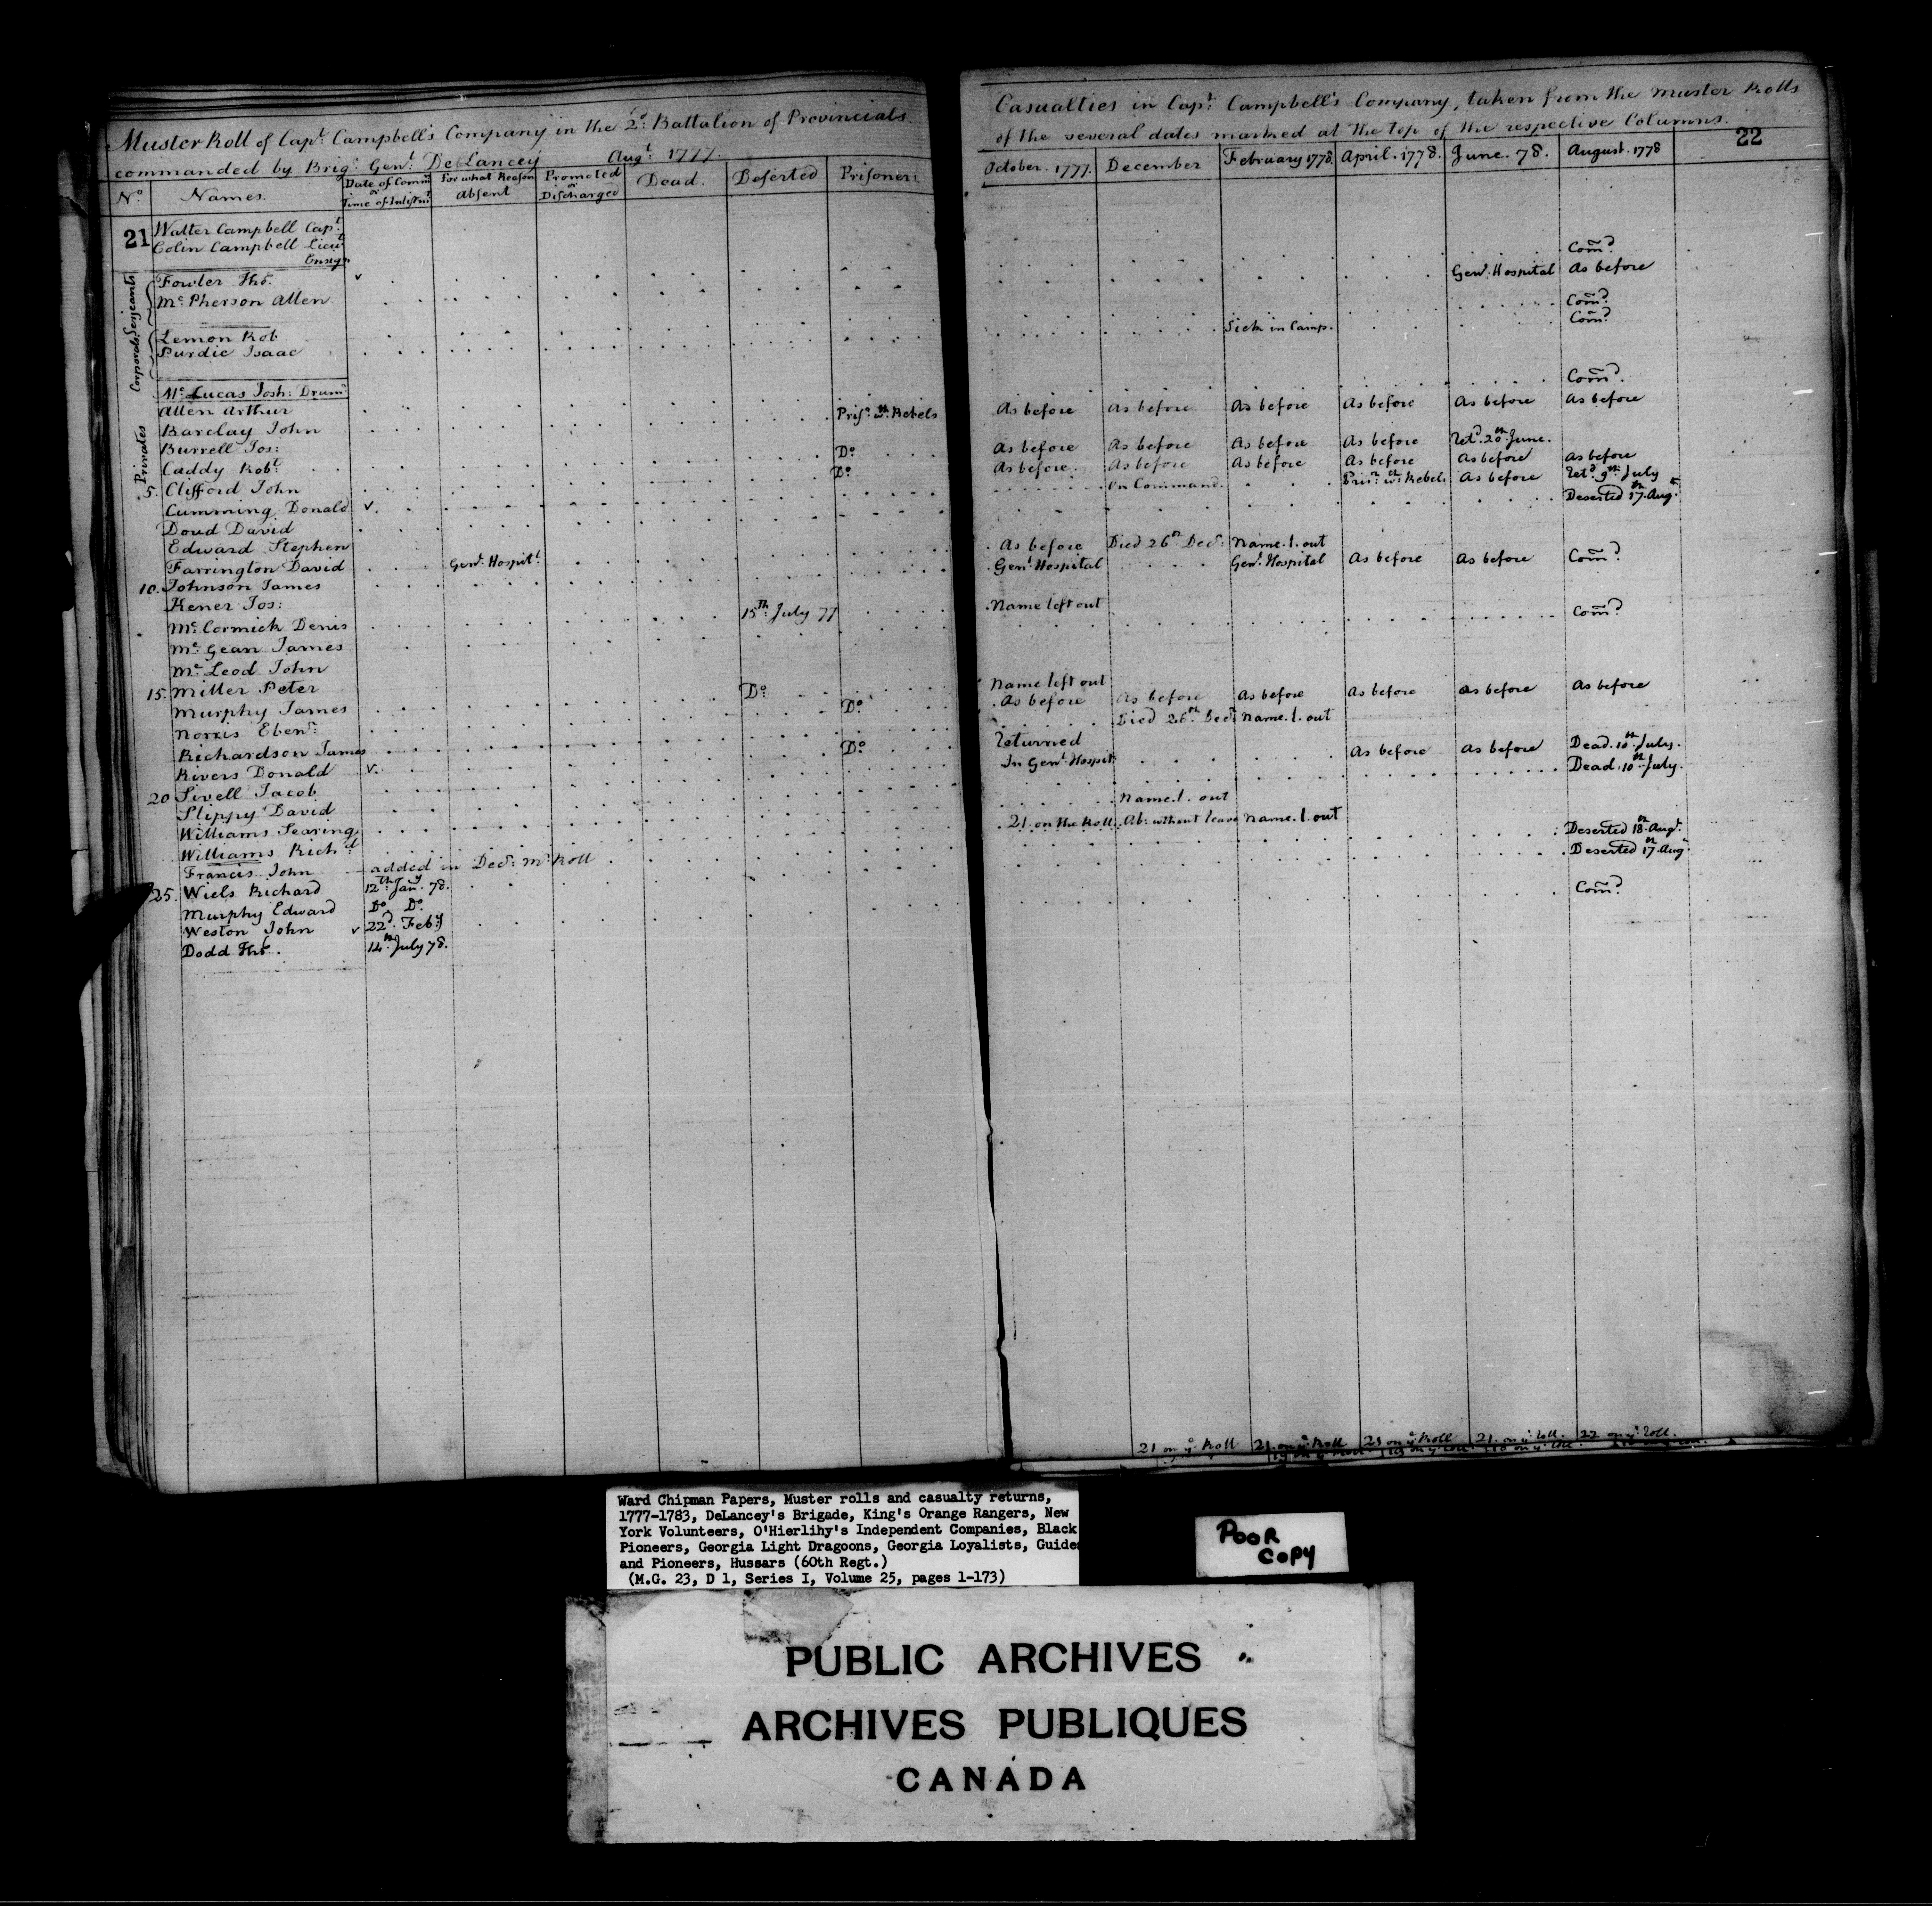 Muster Roll of Capt. Campbell's Company in the 2d. Battalion of Provincials
commanded by Brigr. Genl. DeLancey Augt. 1777.
No. Names. Date of Comm. or Time of Inlistmt. For what Reason Absent Promoted or Discharged Dead. Deserted Prisoners
21 Walter Campbell Capt.
Colin Campbell Lieut.
Ensign
Serjeants
Fowler Thos. v
Mc.Pherson Allen
Corporals
Lemon Rob
Purdie Isaac
Mc.Lucas Josh: Drumr.
Privates
Allen Arthur Prisr. wth. Rebels
Barclay John
Burrell Jos: Do.
Caddy Robt. Do.
5. Clifford John
Cumming Donald v.
Doud David
Edward Stephen
Farrington David Genl. Hospitl.
10. Johnson James
Kener Jos: 15th. July 77
Mc.Cormick Denis
Mc.Gean James
Mc.Leod John
15. Miller Peter Do.
Murphy James Do.
Norris Ebenr.
Richardson James Do.
Rivers Donald v.
20 Sivell Jacob
Slippy David
Williams Searing
Williams Richd.
Francis John added in Decr. Mr. Roll
25. Wiels Richard 12th. Jany. 78.
Murphy Edward Do. Do.
Weston John v 22d. Feby
Dodd Thos. 14th. July 78.
Casualties in Capt. Campbell's Company, taken from the Muster Rolls
of the several dates marked at the top of the respective Columns.
22
October. 1777. December February 1778. April. 1778. June. 78. August. 1778
Comd.
Genl. Hospital As before
Comd.
Sick in Camp. Comd.
Comd.
As before As before As before As before As before As before
As before As before As before As before Retd. 20th. June.
As before. As before As before As before As before As before
On Command. Prisr. wth. Rebels As before Retd. 9th. July
Deserted 17th. Augt.
As before Died 26th. Decr. Name. l. out
Genl. Hospital Genl. Hospital As before As before Comd.
Name left out
Comd.
Name left out
As before As before As before As before As before As before
Died 26th. Decr. Name. l. out
Returned As before As before Dead. 10th. July.
In Genl. Hospitl. Dead. 10th. July.
Name. l. out
21. on the Roll. Ab: without leave Name. l. out
Deserted 18th. Augt.
Deserted 17th. Augt.
Comd.
21 on ye. Roll 21. on ye. Roll 23 on ye. Roll 21. on ye. Roll. 22 on ye. Roll.
Ward Chipman Papers, Muster rolls and casualty returns,
1777-1783, DeLancey's Brigade, King's Orange Rangers, New
York Volunteers, O'Hierlihy's Independent Companies, Black
Pioneers, Georgia Light Dragoons, Georgia Loyalists, Guides
and Pioneers, Hussars (60th Regt.)
(M.G. 23, D 1, Series I, Volume 25, pages 1-173)
POOR
COPY
PUBLIC ARCHIVES
ARCHIVES PUBLIQUES
CANADA